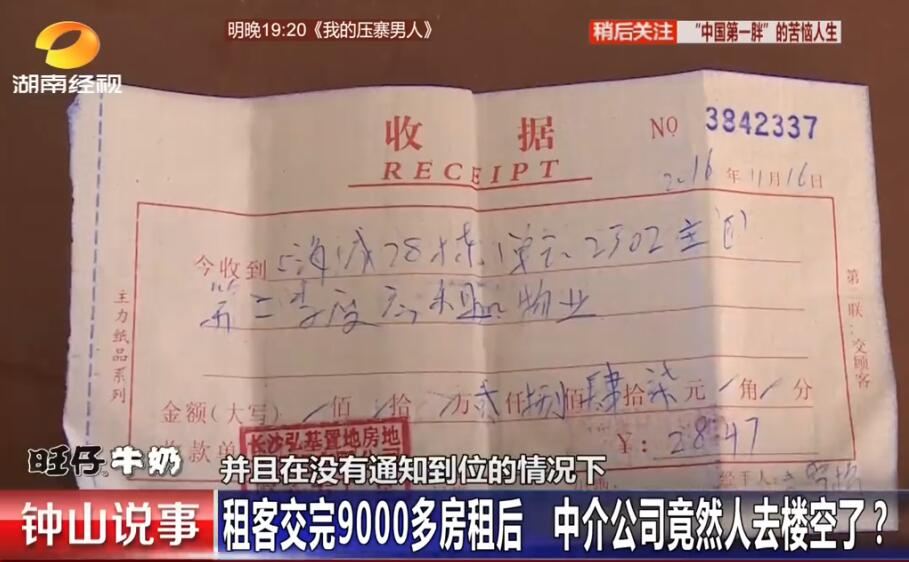 明晚19:20《我的压寨男人》
稍后关注 "中国第一胖"的苦恼人生
湖南经视
收据
RECEIPT
NO 3842337
2016年11月16日
今收到 上海城28栋1单元2302主卧
第二季度房租 物业
金额(大写) / 佰 / 拾 / 万贰仟捌佰肆拾柒元 / 角 / 分
长沙弘基置地房地
¥:2847
主力纸品系列
第二联:交顾客
旺仔牛奶
并且在没有通知到位的情况下
钟山说事
租客交完9000多房租后 中介公司竟然人去楼空了?